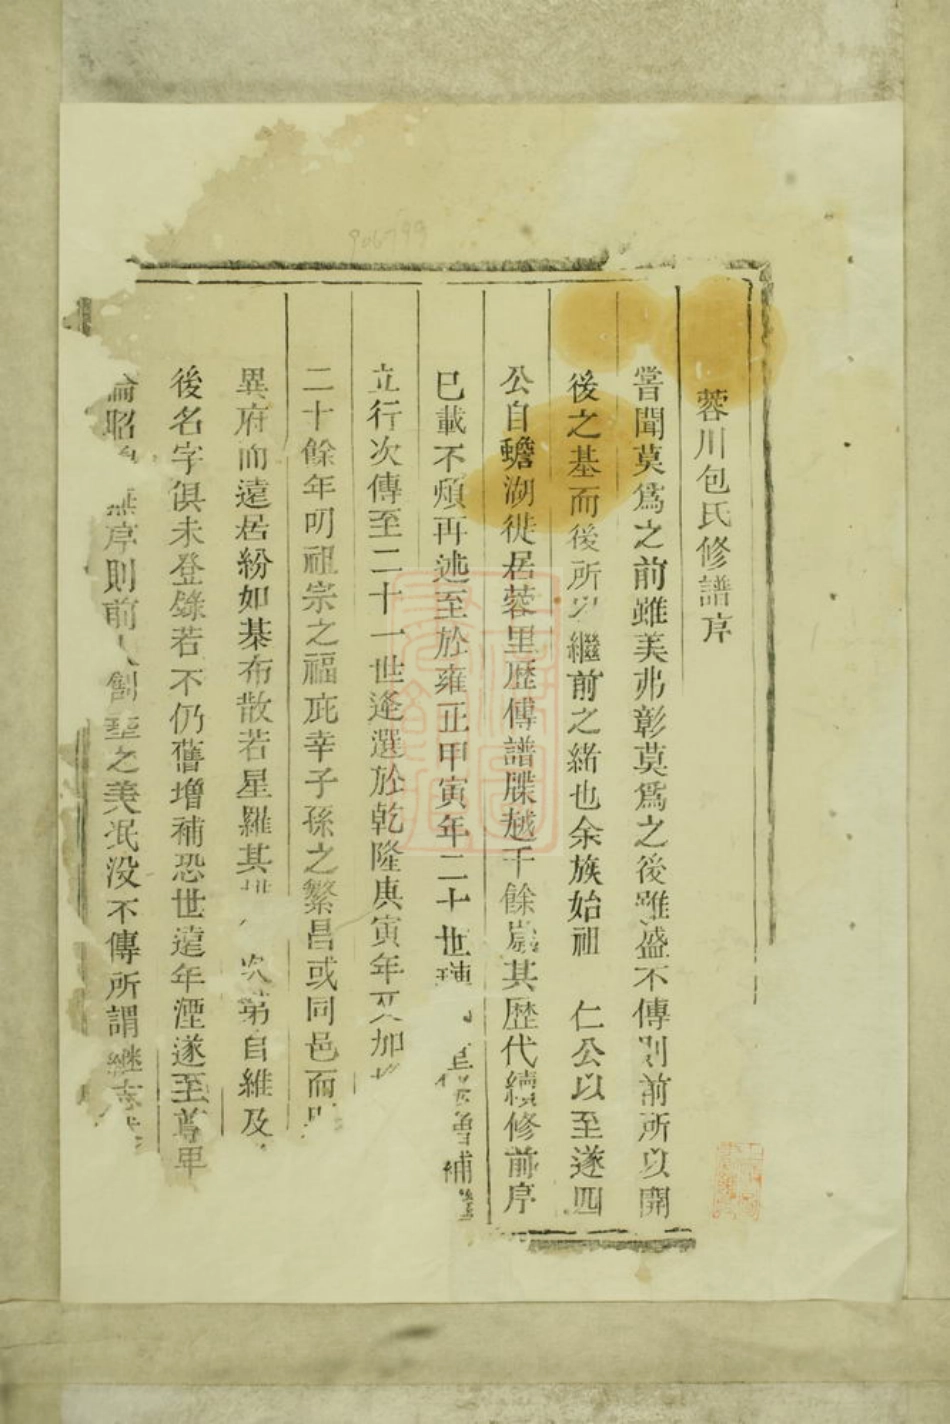 蓉川包氏修譜序
嘗聞莫為之前雖美弗彰莫為之後雖盛不傳則前所以開
後之基而後所以繼前之緒也余族始祖　仁公以至遂四
公自蟾湖徙居蓉里歷傳譜牒越千餘歲其歷代續修前序
已載不煩再述至於雍正甲寅年二十世璉
補
立行次傳至二十一世逢選於乾隆庚寅年又加
二十餘年叨祖宗之福庇幸子孫之繁昌或同邑而
異府而遠居紛如棊布散若星羅其
次第自維及
後名字俱未登錄若不仍舊增補恐世遠年湮遂至尊卑
論昭
序則前人創垂之美泯没不傳所謂繼志
906799